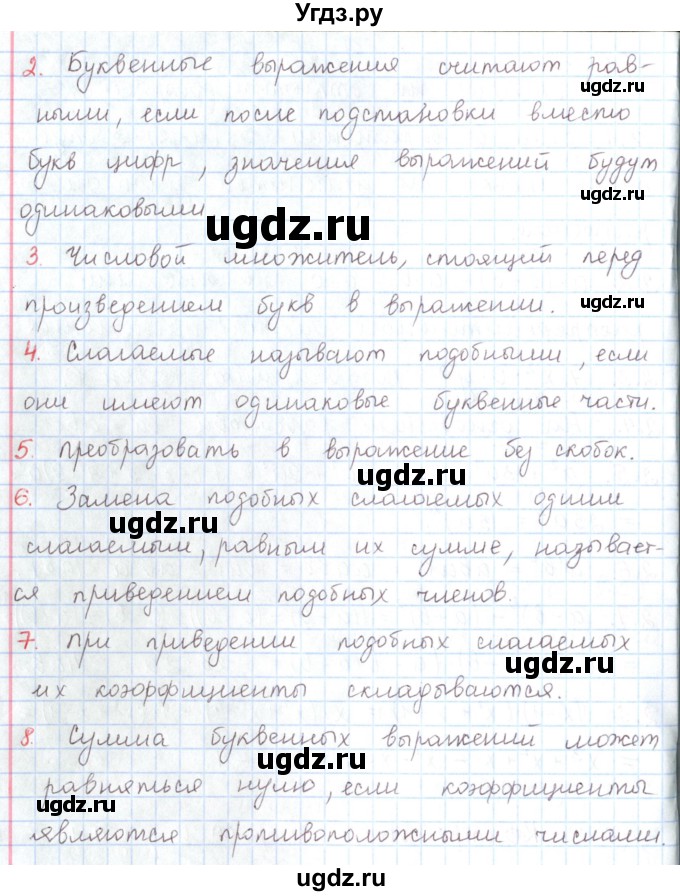 Угдз.ру
2. Буквенные выражения считают рав-
ugdz.ru
ными, если после подстановки вместо
букв цифр, значения выражений будут
ugdz.ru
одинаковыми
ugdz.ru
3. Числовой множитель, стоящий перед
произведением букв в выражении.
ugdz.ru
4. Слагаемые называют подобными, если
они имеют одинаковые буквенные части.
5. Преобразовать в выражение без скобок.
ugdz.ru
6. Замена подобных слагаемых одним
ugdz.ru
слагаемым, равным их сумме, называет-
ся приведением подобных членов.
7. При приведении подобных слагаемых
ugdz.ru
их коэффициенты складываются.
8. Сумма буквенных выражений может
ugdz.ru
равняться нулю, если коэффициенты
ugdz.ru
являются противоположными числами.